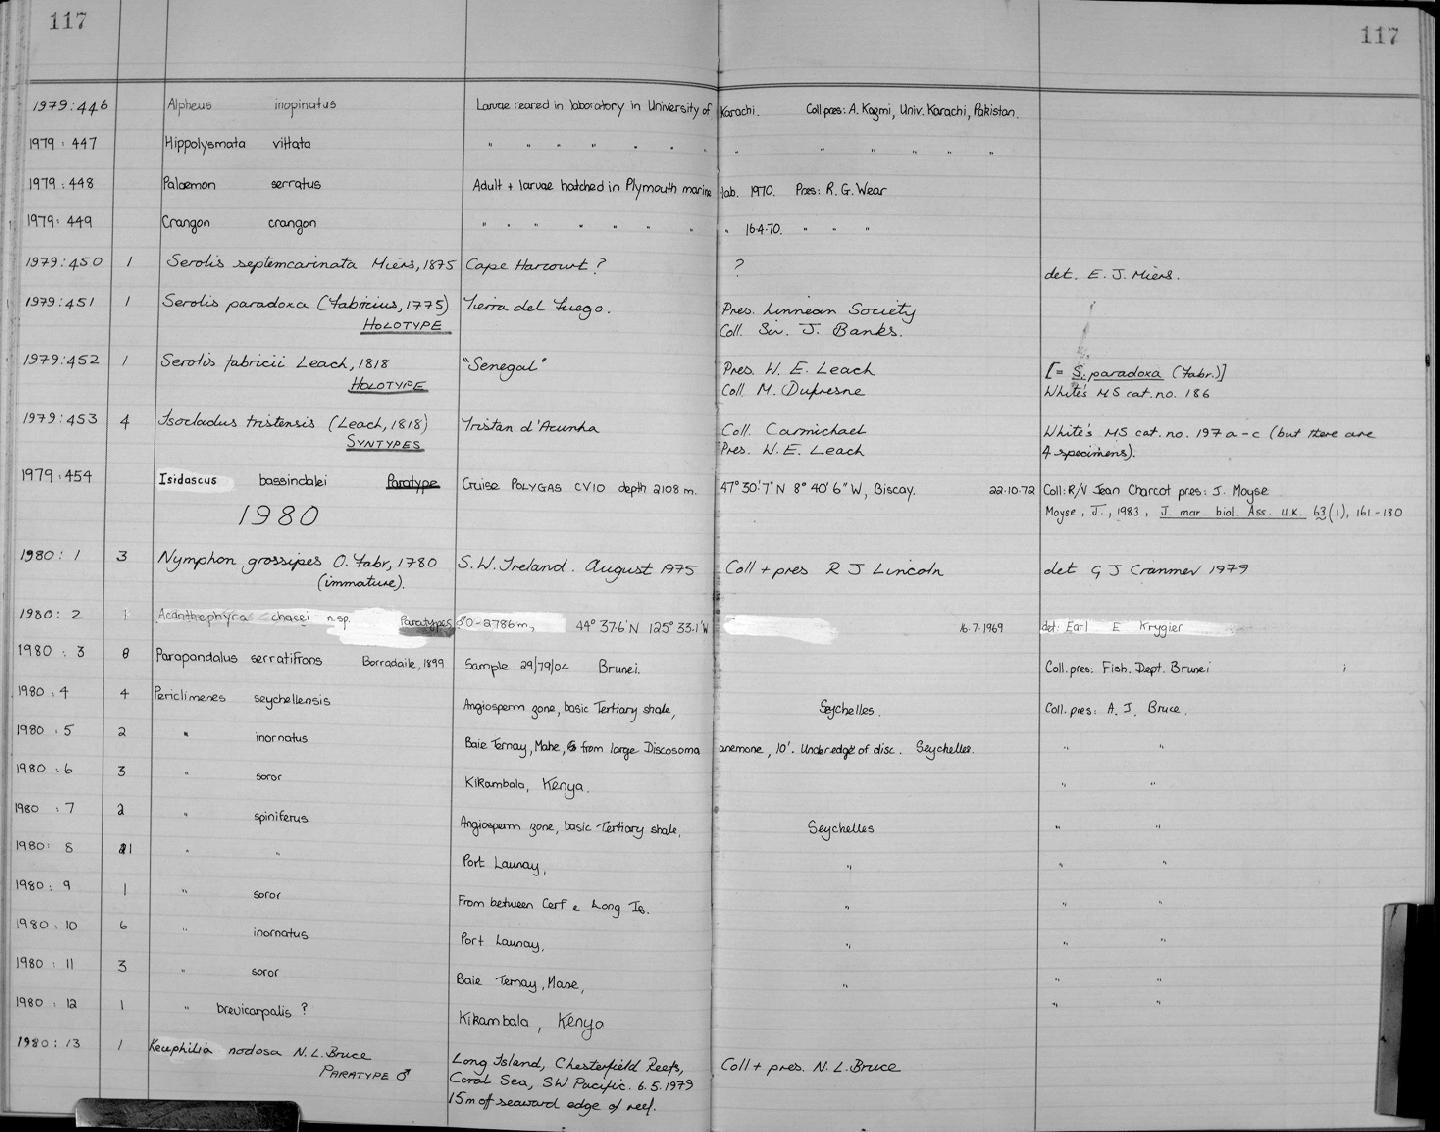 117 117
1979:446 Alpheus inopinatus Larvae reared in laboratory in University of Karachi. Coll pres: A. Kazmi, Univ. Karachi, Pakistan.
1979:447 Hippolysmata vittata " " " " " " " " " " " " "
1979:448 Palaemon serratus Adult + larvae hatched in Plymouth marine lab. 1970. Pres: R. G. Wear
1979:449 Crangon crangon " " " " " " " " 16.4.70. " " "
1979:450 1 Serolis septemcarinata Miers, 1875 Cape Harcourt ? ? det. E. J. Miers.
1979:451 1 Serolis paradoxa (Fabricius, 1775) Tierra del Fuego. Pres. Linnean Society
HOLOTYPE Coll. Sir. J. Banks.
1979:452 1 Serolis fabricii Leach, 1818 "Senegal" Pres. W. E. Leach [= S. paradoxa (Fabr.)]
HOLOTYPE Coll. M. Dufresne White's MS cat. no. 186
1979:453 4 Isocladus tristensis (Leach, 1818) Tristan d'Acunha Coll. Carmichael White's MS cat. no. 197 a-c (but there are
SYNTYPES Pres. W. E. Leach 4 specimens).
1979:454 Isidascus bassindalei Paratype Cruise POLYGAS CV10 depth 2108 m. 47° 30'7'N 8° 40' 6"W, Biscay. 22.10.72 Coll: R/V Jean Charcot pres: J. Moyse
Moyse, J., 1983, J. mar. biol. Ass. U.K. 63(1), 161-180
1980
1980: 1 3 Nymphon grossipes O. Fabr, 1780 S. W. Ireland. August 1975 Coll + pres R J Lincoln det G J Cranmer 1979
(immature).
1980: 2 1 Acanthephyra chacei n. sp. Paratypes ♂ 0-2786m, 44° 37.6'N 125° 33.1'W 16.7.1969 det: Earl E Krygier
1980: 3 8 Parapandalus serratifrons Borradaile, 1899 Sample 29/79/02 Brunei. Coll. pres: Fish. Dept. Brunei
1980: 4 4 Periclimenes seychellensis Angiosperm zone, basic Tertiary shale, Seychelles. Coll. pres: A. J. Bruce.
1980: 5 2 " inornatus Baie Ternay, Mahe, from large Discosoma anemone, 10'. Under edge of disc. Seychelles. " "
1980: 6 3 " soror Kikambala, Kenya. " "
1980: 7 2 " spiniferus Angiosperm zone, basic Tertiary shale, Seychelles " "
1980: 8 21 " " Port Launay, " " "
1980: 9 1 " soror From between Cerf & Long Is. " " "
1980: 10 6 " inornatus Port Launay, " " "
1980: 11 3 " soror Baie Ternay, Mahe, " " "
1980: 12 1 " brevicarpalis ? Kikambala, Kenya " "
1980: 13 1 Keuphilia nodosa N. L. Bruce Long Island, Chesterfield Reefs, Coll + pres. N. L. Bruce
PARATYPE ♂ Coral Sea, SW Pacific. 6.5.1979
15m off seaward edge of reef.